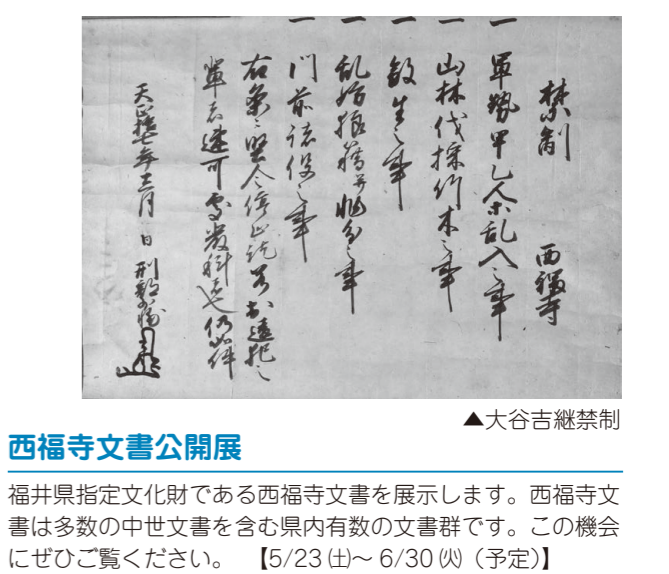 禁制 西福寺
一 軍勢甲乙人等乱入之事
一 山林伐採竹木之事
一 殺生之事
一 乱妨狼藉并
一 門前諸役之事
右条々堅令停止訖若於違犯之
輩者速可処厳科者也仍如件
天正 年 月 日 刑部少輔
▲大谷吉継禁制
西福寺文書公開展
福井県指定文化財である西福寺文書を展示します。西福寺文
書は多数の中世文書を含む県内有数の文書群です。この機会
にぜひご覧ください。 【5/23㈯～6/30㈫（予定）】